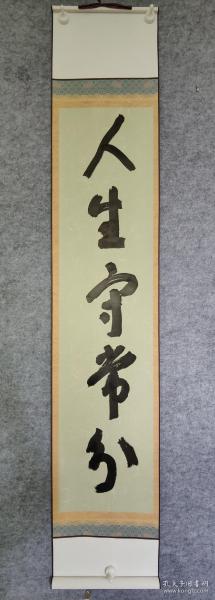 人生守常分
孔夫子旧书网